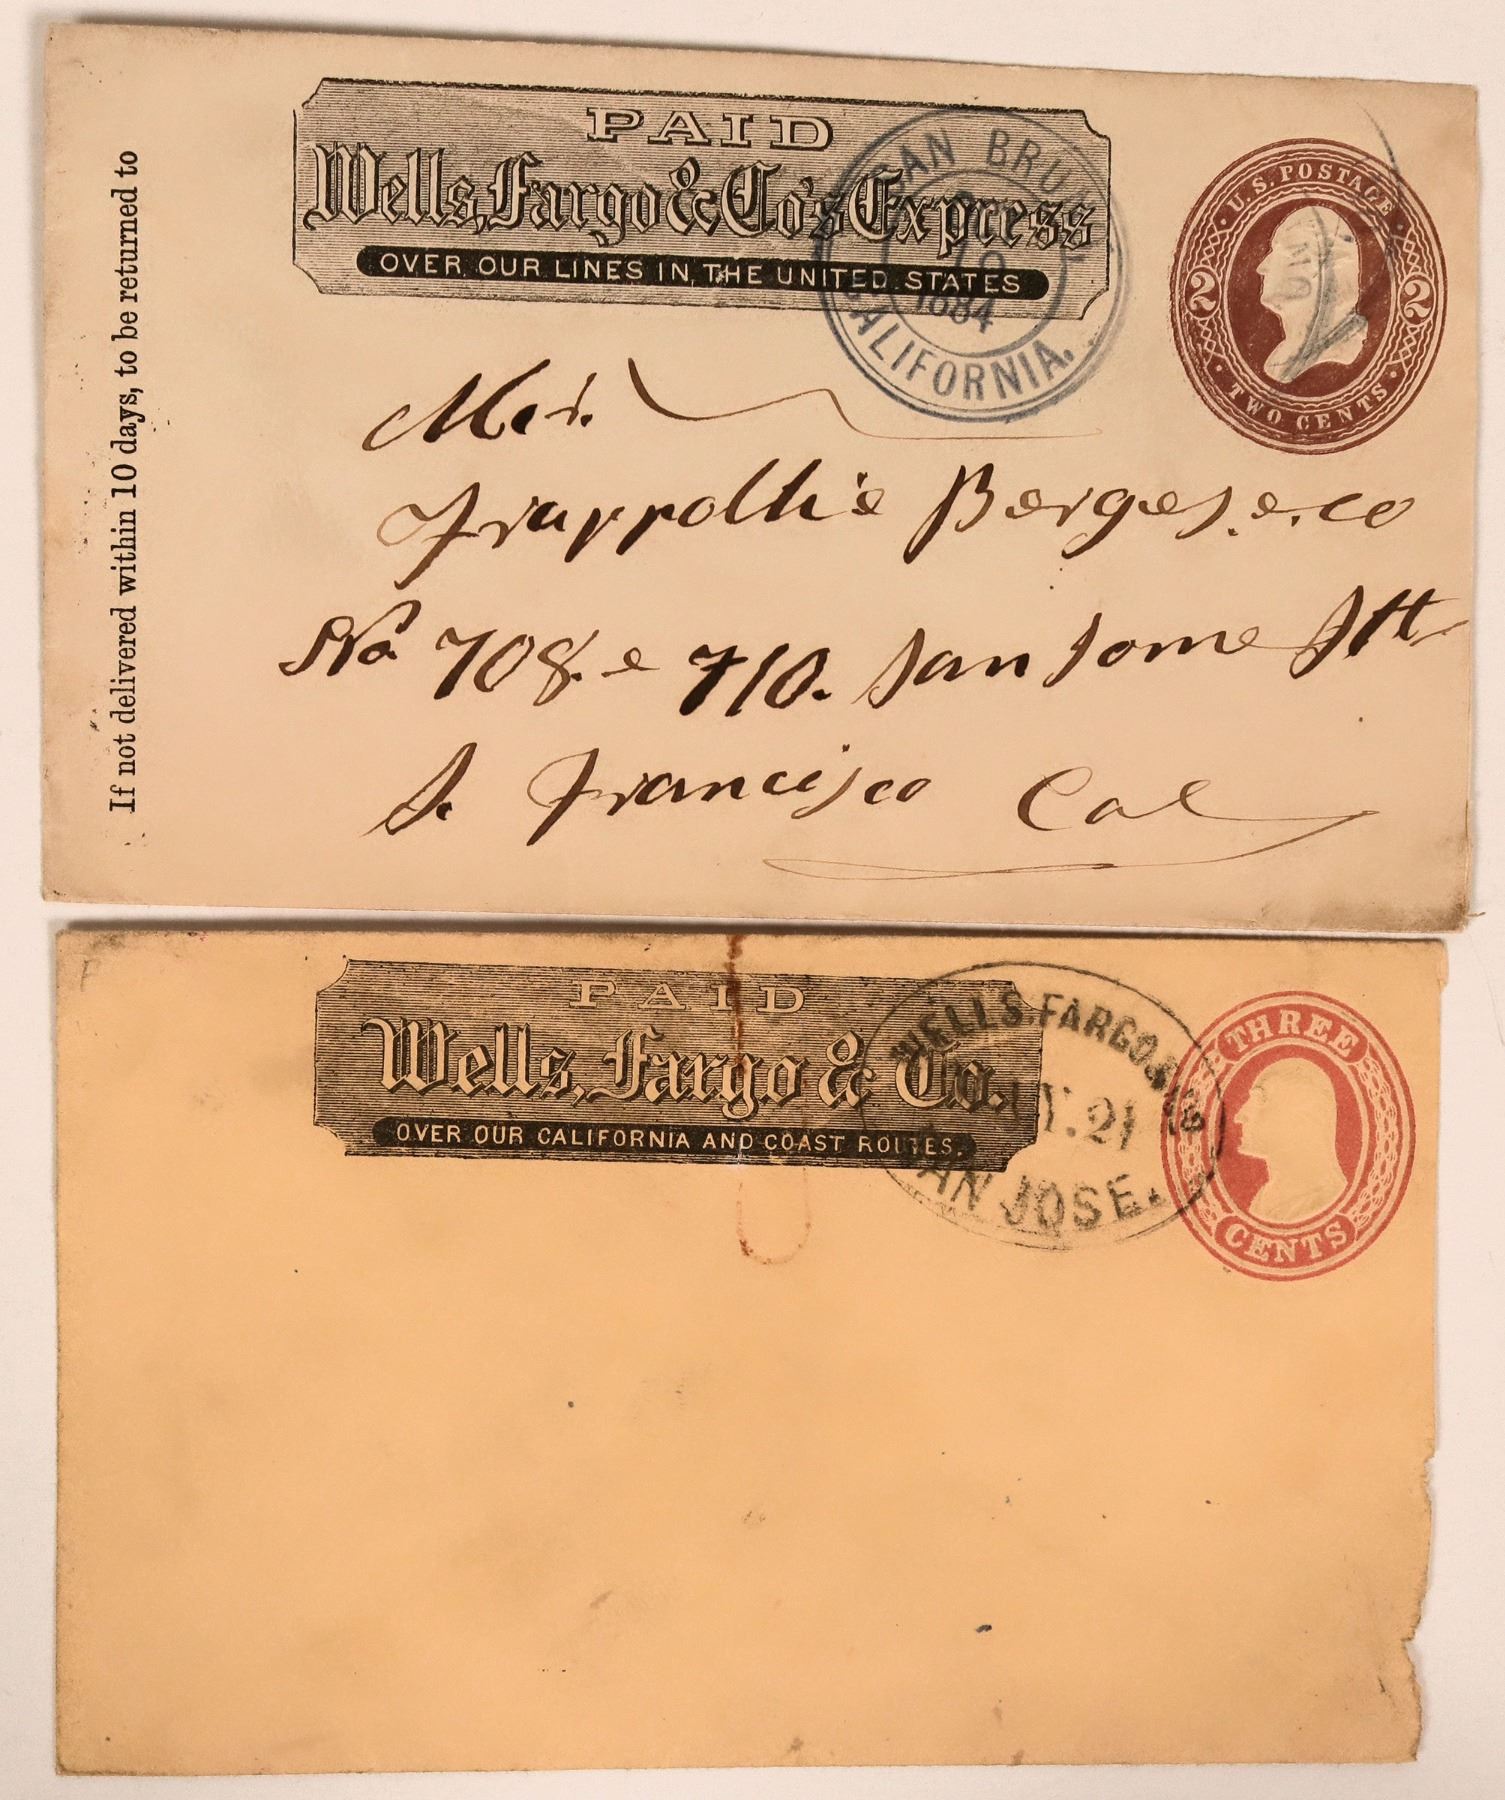 If not delivered within 10 days, to be returned to
PAID
Wells, Fargo & Co's Express
OVER OUR LINES IN THE UNITED STATES
SAN BRU
1884
CALIFORNIA.
U.S. POSTAGE
2 2
TWO CENTS
Frappolli e Berges. e. co
No 708. e 710. Sansome Stt
S. Francisco Cal
PAID
Wells, Fargo & Co.
OVER OUR CALIFORNIA AND COAST ROUTES.
WELLS, FARGO & CO
21
SAN JOSE.
THREE
CENTS